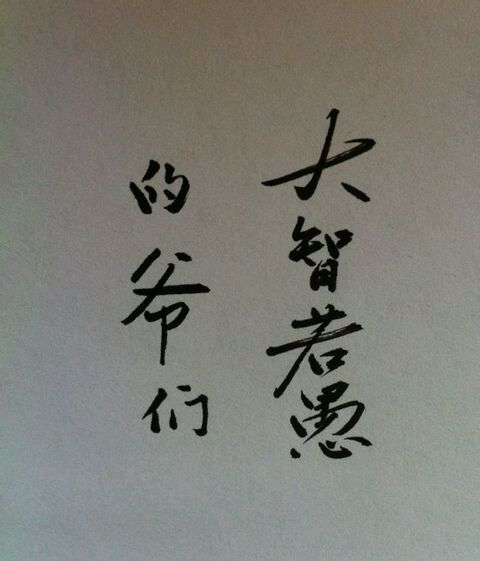 大智若愚
的爷们